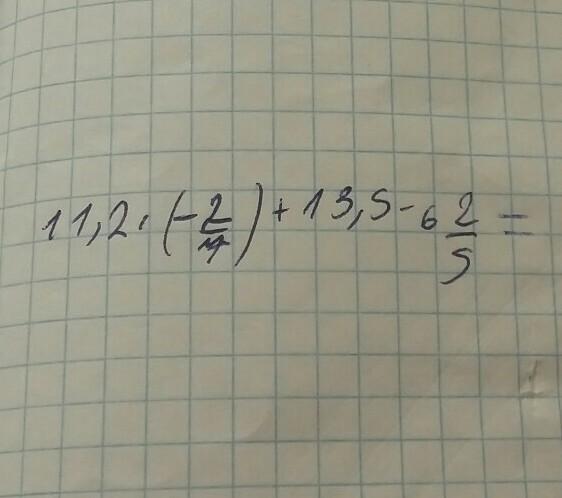 11,2 · (-2/7) + 13,5 - 6 2/5 =